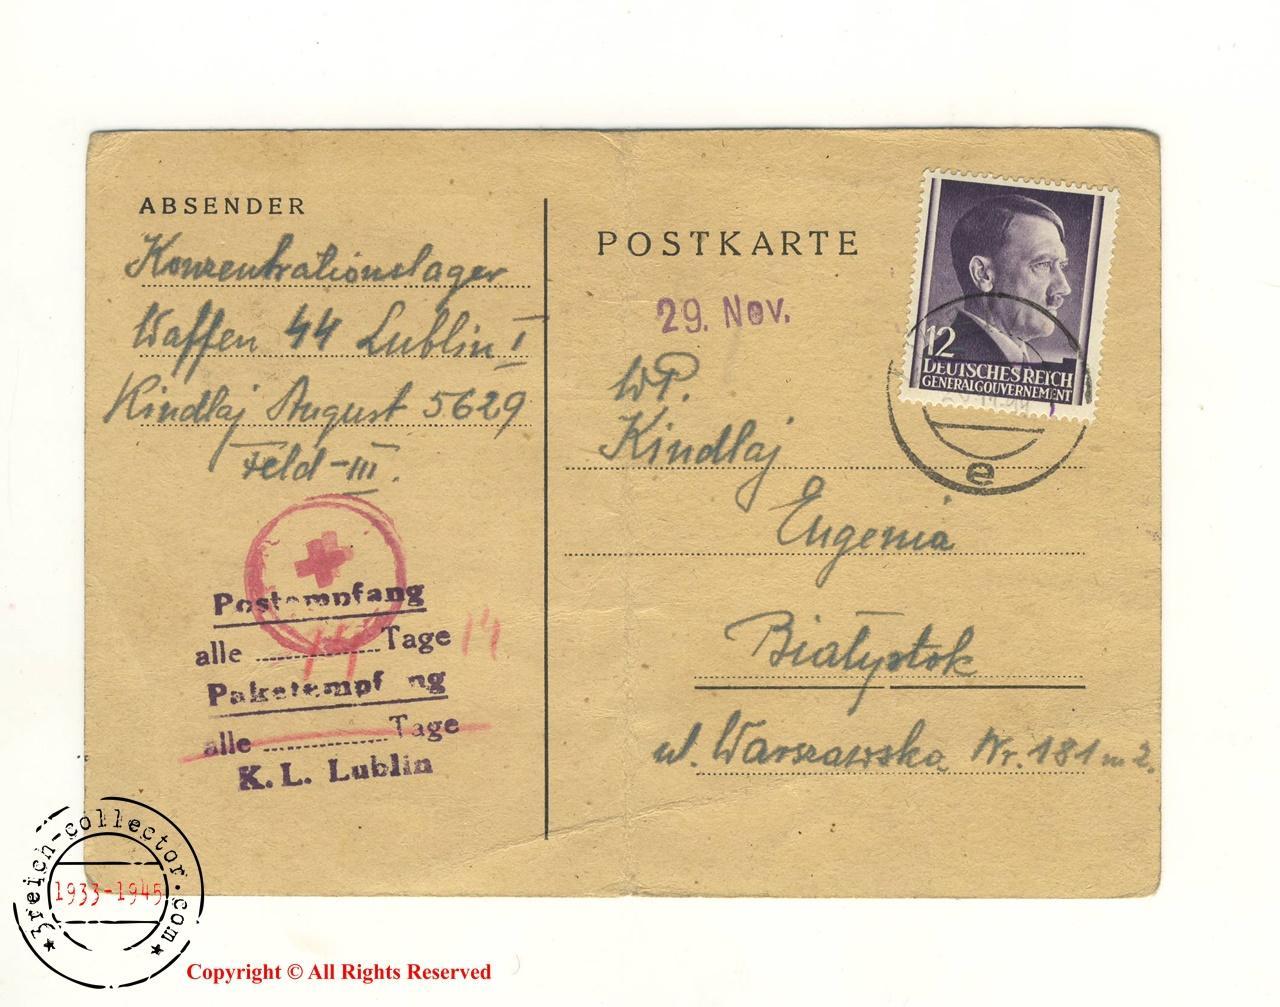 ABSENDER
Konzentrationslager
Waffen 44 Lublin I
Kindlaj August 5629
Feld-III.
Postempfang
alle ............ Tage 14
14
Paketempf ng
alle ............ Tage
K. L. Lublin
POSTKARTE
29. Nov.
12
DEUTSCHES REICH
GENERALGOUVERNEMENT
e
WP.
Kindlaj
Eugenia
Białystok
ul. Warszawska Nr. 181 m 2.
3reich-collector.com
1933-1945
Copyright © All Rights Reserved